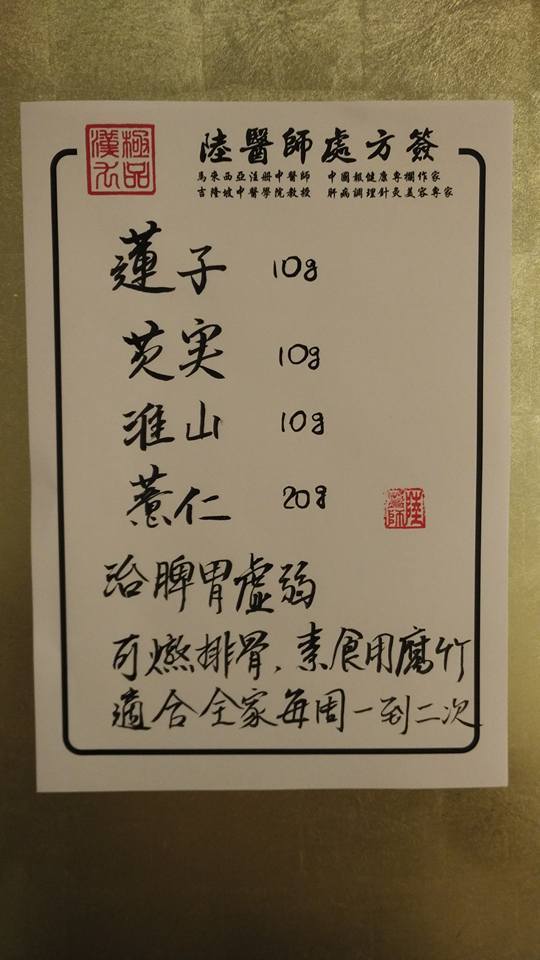 極品
漢方
陸醫師處方簽
馬來西亞注册中醫師 中國報健康專欄作家
吉隆坡中醫學院教授 肝病調理針灸美容專家
蓮子 10g
芡実 10g
淮山 10g
薏仁 20g
陸醫師
治脾胃虛弱
可燃排骨，素食用腐竹
適合全家每周一到二次